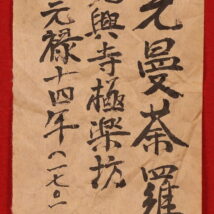 元曼荼羅
元興寺極楽坊
元禄十四年(一七〇一